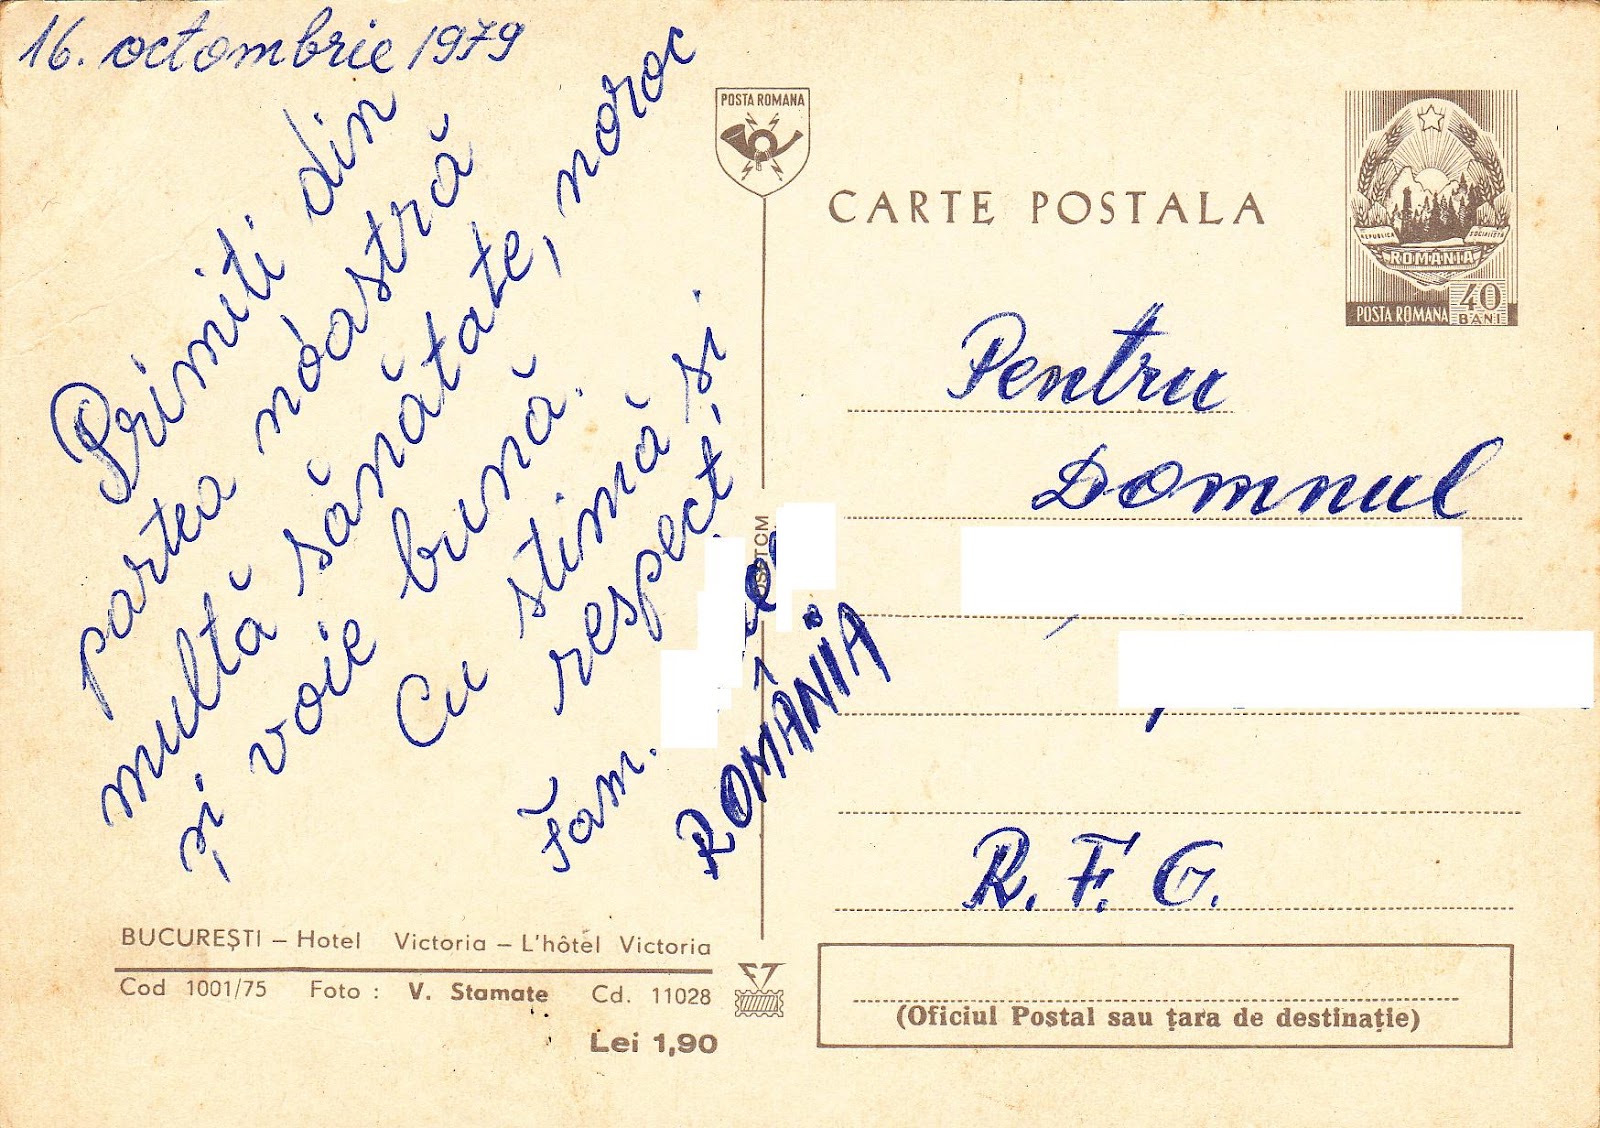 16. octombrie 1979
Primiti din
partea nóastră
multă sănătate, noroc
și voie bună.
Cu stimă si
respect!
Fam.
ROMÂNIA
POSTA ROMANA
CARTE POSTALA
REPUBLICA SOCIALISTĂ
ROMÂNIA
POSTA ROMANA 40 BANI
Pentru
Domnul
R. F. G.
BUCUREȘTI – Hotel Victoria – L'hôtel Victoria
Cod 1001/75 Foto : V. Stamate Cd. 11028
Lei 1,90
(Oficiul Postal sau țara de destinație)